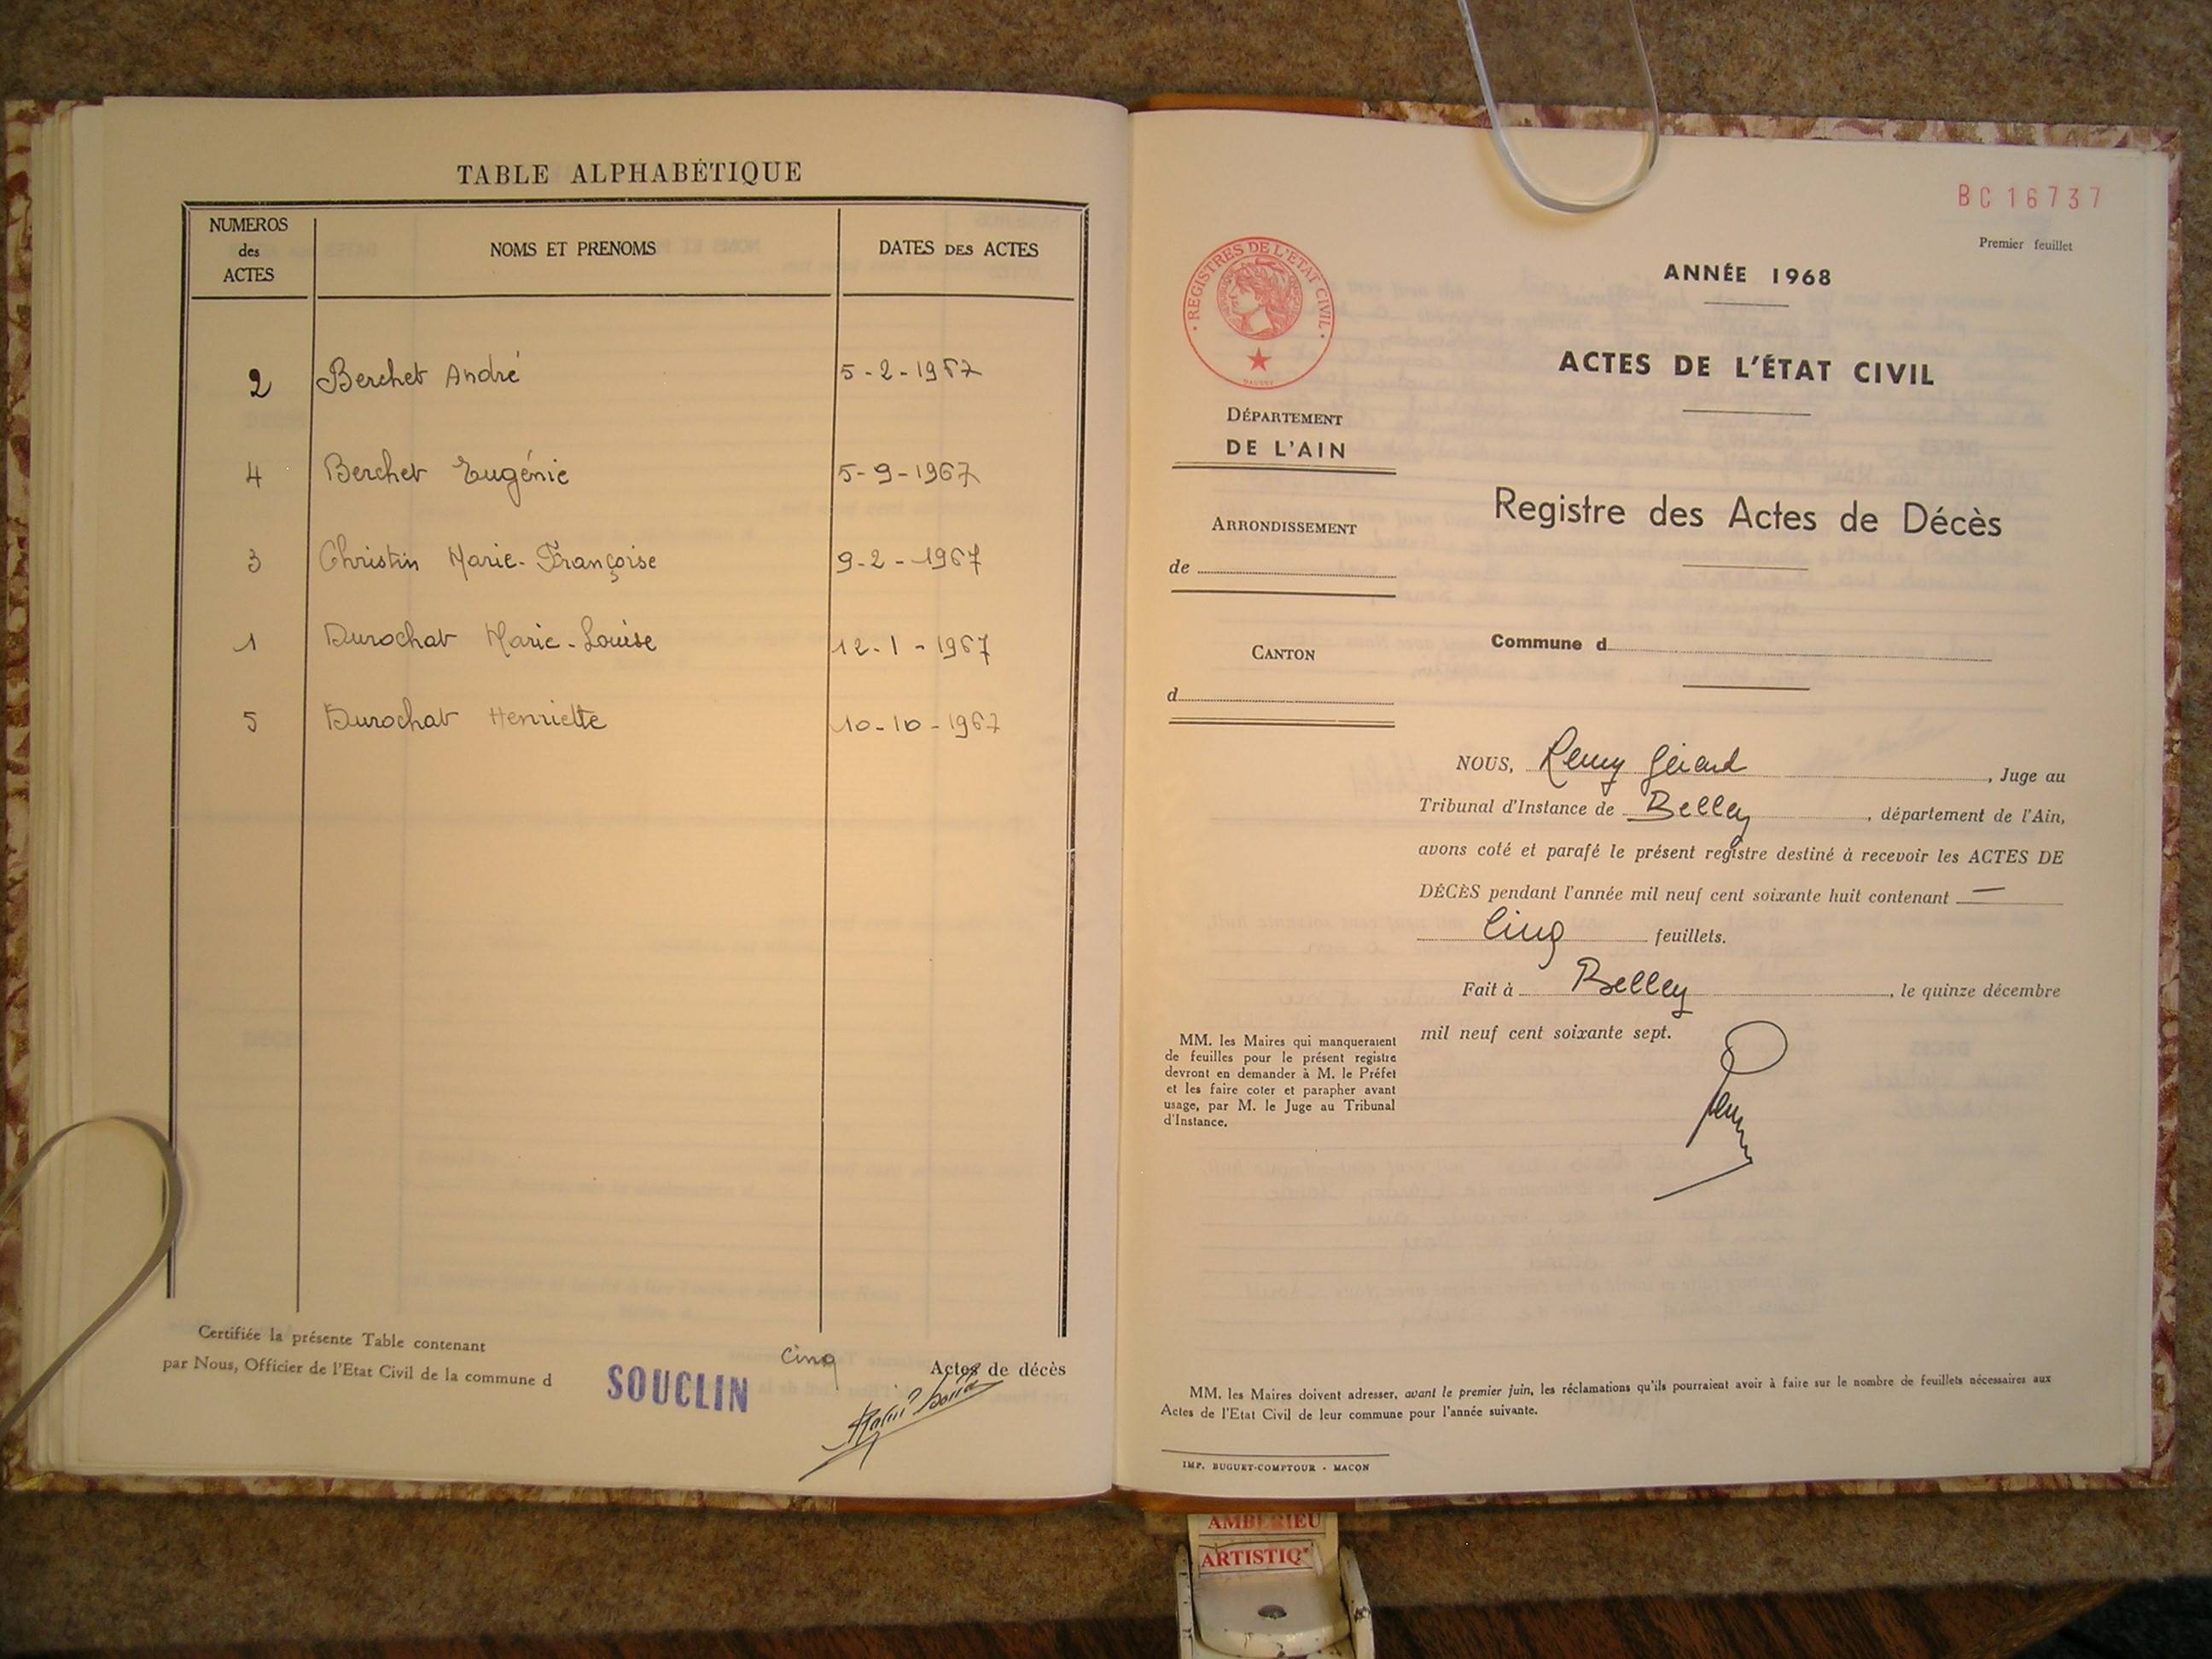 TABLE ALPHABÉTIQUE
NUMEROS
des
ACTES
NOMS ET PRENOMS
DATES DES ACTES
2 Berchet André 5-2-1967
4 Berchet Eugénie 5-9-1967
3 Christin Marie-Françoise 9-2-1967
1 Durochat Marie-Louise 12-1-1967
5 Durochat Henriette 10-10-1967
Certifiée la présente Table contenant cinq Actes de décès
par Nous, Officier de l'Etat Civil de la commune d SOUCLIN
BC 16737
Premier feuillet
REGISTRES DE L'ÉTAT CIVIL
ANNÉE 1968
ACTES DE L'ÉTAT CIVIL
DÉPARTEMENT
DE L'AIN
Registre des Actes de Décès
ARRONDISSEMENT
de
Commune d
CANTON
d
NOUS, Remy Gérard, Juge au
Tribunal d'Instance de Belley, département de l'Ain,
avons coté et parafé le présent registre destiné à recevoir les ACTES DE
DÉCÈS pendant l'année mil neuf cent soixante huit contenant —
Cinq feuillets.
Fait à Belley, le quinze décembre
mil neuf cent soixante sept.
MM. les Maires qui manqueraient
de feuilles pour le présent registre
devront en demander à M. le Préfet
et les faire coter et parapher avant
usage, par M. le Juge au Tribunal
d'Instance.
MM. les Maires doivent adresser, avant le premier juin, les réclamations qu'ils pourraient avoir à faire sur le nombre de feuillets nécessaires aux
Actes de l'Etat Civil de leur commune pour l'année suivante.
IMP. BUGUET-COMPTOUR - MACON
AMBERIEU
ARTISTIQ